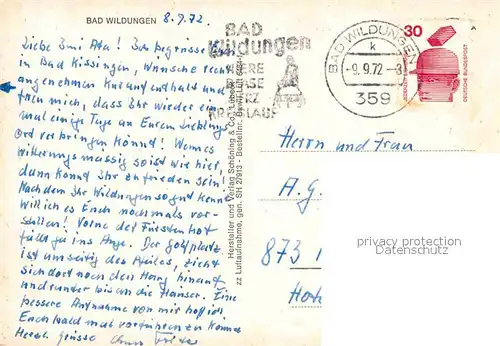 BAD WILDUNGEN 8.9.72.
Liebe Emi Ata! Ich begrüsse Euch
in Bad Kissingen, wünsche recht
angenehmen Kuraufenthalt und
freu mich, dass Ihr wieder ein-
mal einige Tage an Eurem Lieblings-
ort verbringen könnt! Wenn es
witterungsmässig so ist wie hier,
dann könnt Ihr zufrieden sein!
Nachdem Ihr Wildungen so gut kennt
will ich es Euch nochmals vor-
stellen! Vorne der Fürstenhof
fällt ja ins Auge. Der Golfplatz
ist umseitig des Pfeiles, zieht
sich dort noch den Hang hinauf
und runter bis an die Häuser. Eine
bessere Aufnahme von mir hoff ich
Euch bald mal vorführen zu können
Herzl. Grüsse
BAD
Wildungen
NIERE
BLASE
HERZ
KREISLAUF
BAD WILDUNGEN
k
-9.9.72-3
359
30
DEUTSCHE BUNDESPOST
Hersteller und Verlag Schöning & Co., Lübeck
zz Luftaufnahme, gen. SH 27913 - Bestellnr.
Herrn und Frau
A. G.
873
privacy protection
Datenschutz